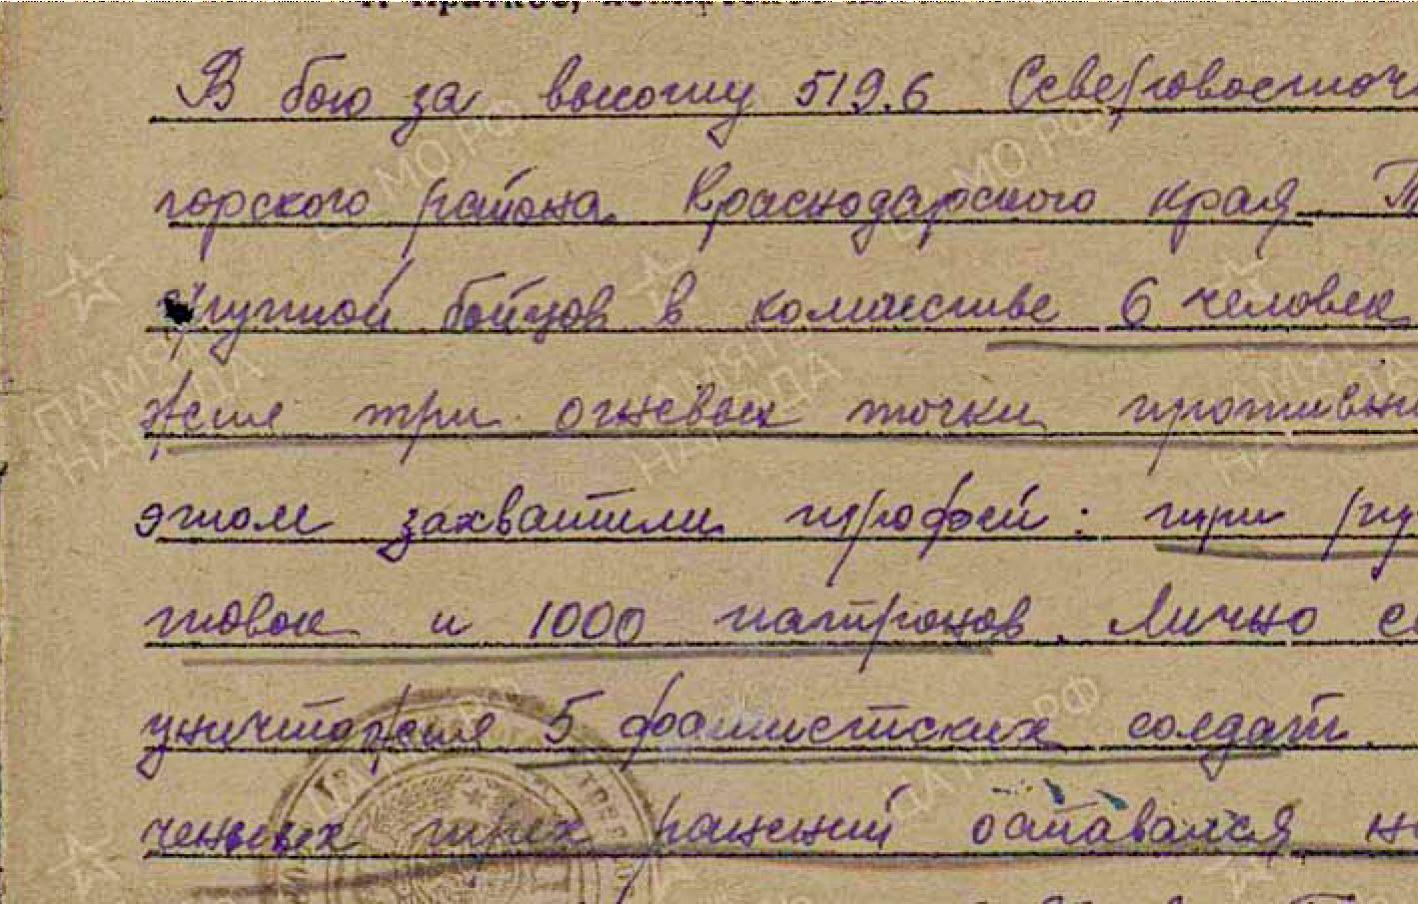 В бою за высоту 519.6 Северовосточ
горского района Краснодарского края.
группой бойцов в количестве 6 человек
жил три огневых точки противни
этом захватили трофей: три ру
товок и 1000 патронов. Лично с
уничтожил 5 фашистских солдат.
ченных трех ранений оставался н